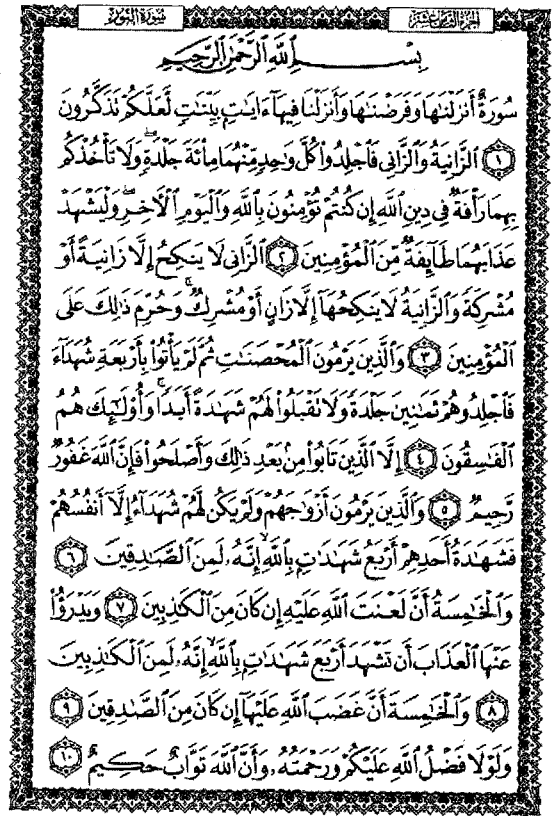 الجزء الثامن عشر
سورة النور
بِسْمِ اللَّهِ الرَّحْمَٰنِ الرَّحِيمِ
سُورَةٌ أَنزَلْنَٰهَا وَفَرَضْنَٰهَا وَأَنزَلْنَا فِيهَآ ءَايَٰتٍۭ بَيِّنَٰتٍ لَّعَلَّكُمْ تَذَكَّرُونَ
﴿١﴾ ٱلزَّانِيَةُ وَٱلزَّانِى فَٱجْلِدُوا۟ كُلَّ وَٰحِدٍ مِّنْهُمَا مِا۟ئَةَ جَلْدَةٍ ۖ وَلَا تَأْخُذْكُم
بِهِمَا رَأْفَةٌ فِى دِينِ ٱللَّهِ إِن كُنتُمْ تُؤْمِنُونَ بِٱللَّهِ وَٱلْيَوْمِ ٱلْـَٔاخِرِ ۖ وَلْيَشْهَدْ
عَذَابَهُمَا طَآئِفَةٌ مِّنَ ٱلْمُؤْمِنِينَ ﴿٢﴾ ٱلزَّانِى لَا يَنكِحُ إِلَّا زَانِيَةً أَوْ
مُشْرِكَةً وَٱلزَّانِيَةُ لَا يَنكِحُهَآ إِلَّا زَانٍ أَوْ مُشْرِكٌ ۚ وَحُرِّمَ ذَٰلِكَ عَلَى
ٱلْمُؤْمِنِينَ ﴿٣﴾ وَٱلَّذِينَ يَرْمُونَ ٱلْمُحْصَنَٰتِ ثُمَّ لَمْ يَأْتُوا۟ بِأَرْبَعَةِ شُهَدَآءَ
فَٱجْلِدُوهُمْ ثَمَٰنِينَ جَلْدَةً وَلَا تَقْبَلُوا۟ لَهُمْ شَهَٰدَةً أَبَدًا ۚ وَأُو۟لَٰٓئِكَ هُمُ
ٱلْفَٰسِقُونَ ﴿٤﴾ إِلَّا ٱلَّذِينَ تَابُوا۟ مِنۢ بَعْدِ ذَٰلِكَ وَأَصْلَحُوا۟ فَإِنَّ ٱللَّهَ غَفُورٌ
رَّحِيمٌ ﴿٥﴾ وَٱلَّذِينَ يَرْمُونَ أَزْوَٰجَهُمْ وَلَمْ يَكُن لَّهُمْ شُهَدَآءُ إِلَّآ أَنفُسُهُمْ
فَشَهَٰدَةُ أَحَدِهِمْ أَرْبَعُ شَهَٰدَٰتٍۭ بِٱللَّهِ ۙ إِنَّهُۥ لَمِنَ ٱلصَّٰدِقِينَ ﴿٦﴾
وَٱلْخَٰمِسَةُ أَنَّ لَعْنَتَ ٱللَّهِ عَلَيْهِ إِن كَانَ مِنَ ٱلْكَٰذِبِينَ ﴿٧﴾ وَيَدْرَؤُا۟
عَنْهَا ٱلْعَذَابَ أَن تَشْهَدَ أَرْبَعَ شَهَٰدَٰتٍۭ بِٱللَّهِ ۙ إِنَّهُۥ لَمِنَ ٱلْكَٰذِبِينَ
﴿٨﴾ وَٱلْخَٰمِسَةَ أَنَّ غَضَبَ ٱللَّهِ عَلَيْهَآ إِن كَانَ مِنَ ٱلصَّٰدِقِينَ ﴿٩﴾
وَلَوْلَا فَضْلُ ٱللَّهِ عَلَيْكُمْ وَرَحْمَتُهُۥ وَأَنَّ ٱللَّهَ تَوَّابٌ حَكِيمٌ ﴿١٠﴾